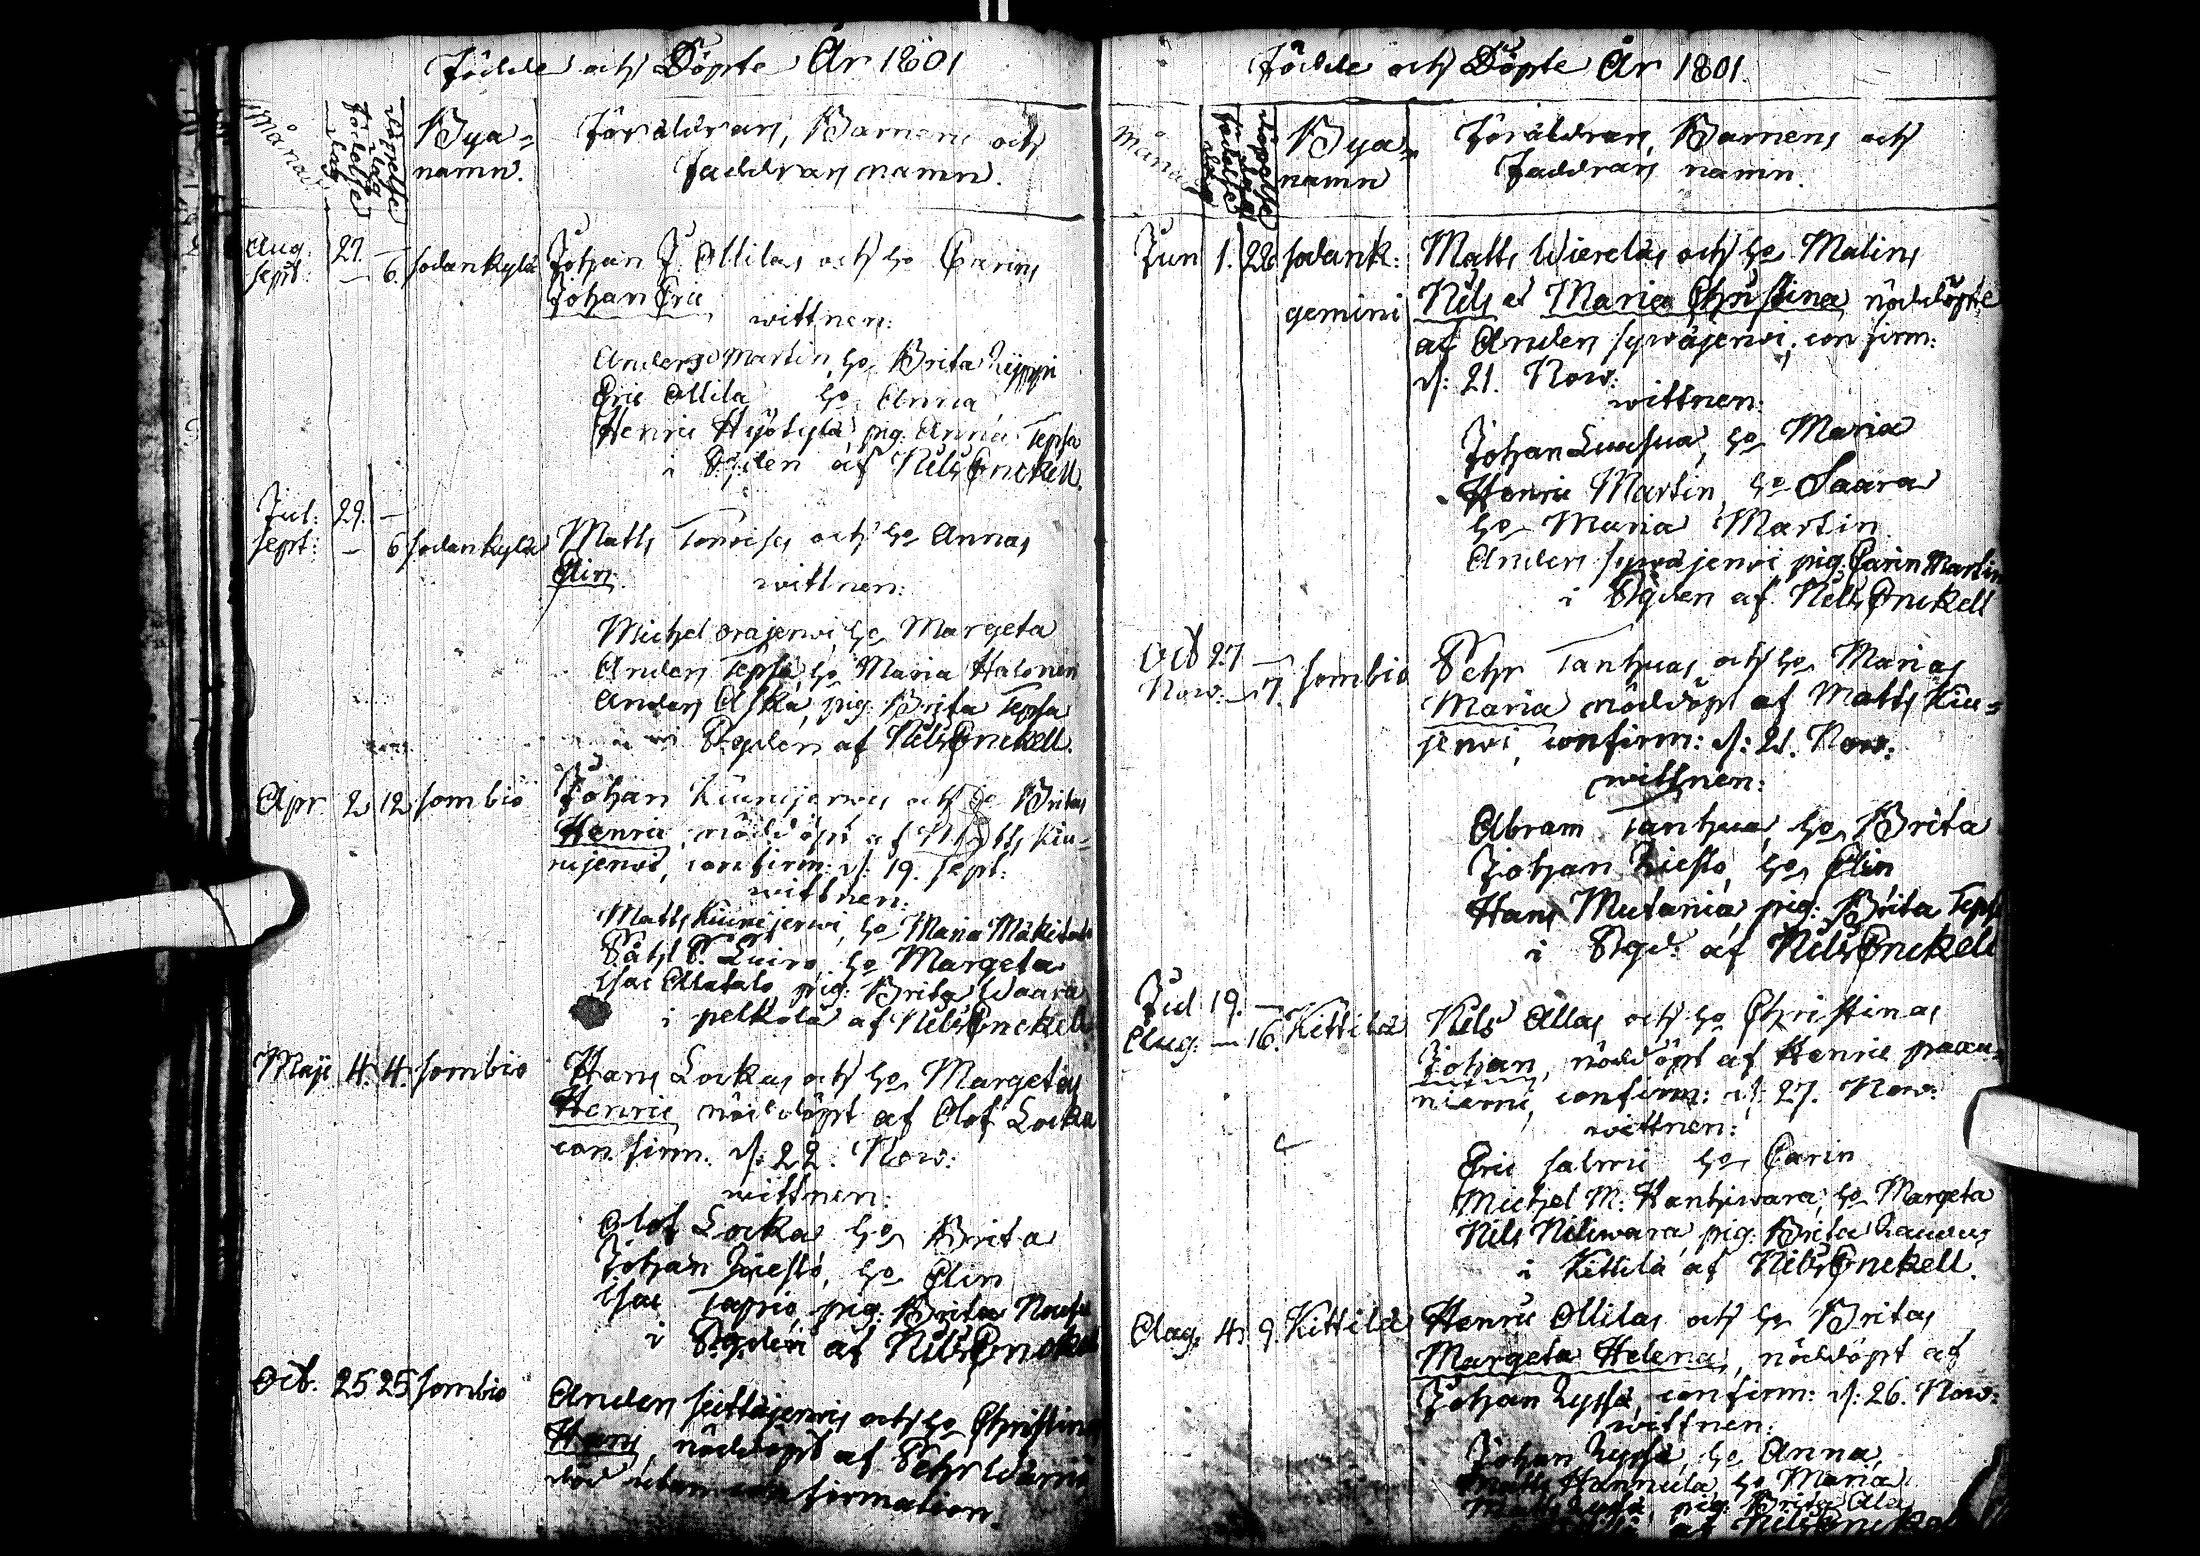 Födde och Döpte År 1801
Månad
födelse dag
döpelse dag
Bya=
namn.
Föräldrars, Barnens och
faddrars namn.
Aug. 27. —
Sept: — 6. Sodankylä
Johan J. Ollilas och ho Carins
Johan Eric
wittnen:
Anders Martin, ho Brita
Eric Ollila ho Anna
Henric Hyötylä, pig. Anna Tepsa
i Sgden af Nils Enckell.
Jul: 29. —
Sept: — 6 Sodankylä
Matts och ho Annas
Elin.
wittnen:
Michel Orajerwi, ho Margeta
Anders Tepsa, ho Maria Halonen
Anders Aska, pig. Brita Tepsa
i Sgden af Nils Enckell.
Apr 2 12 Sombio
Johan Kiurujerwis och ho Britas
Henric, nöddöpt af Matts Kiu=
rujerwi, confirm: d: 19. Sept:
wittnen:
Matts Kiurujerwi, ho Maria
P. Luiro, ho Margeta
Isac Alatalo, pig: Brita Waara
i Pelkola af Nils Enckell
Maji 4. 4. Sombio
Hans Lockas och ho Margetas
Henric, nöddöpt af Olof Locka
confirm. d: 22. Now:
wittnen:
Olof Locka ho Brita
Johan Riesto, ho Elin
Isac Tapio, pig: Brita
i Sgden af Nils Enckell
Oct. 25 25 Sombio
Anders Siettäjerwis och ho Christinas
Hans nöddöpt af Pehr
död utan confirmation.
Födde och Döpte År 1801.
Månad
födelse dag
döpelse dag
Bya=
namn
Föräldrars, Barnens och
Faddrars namn.
Jun 1. 22 Sodank:
gemini
Matts Wierelas och ho Malins
Nils et Maria Christina nöddöpte
af Anders Sywäjerwi, confirm:
d: 21. Now:
wittnen:
Johan Luusua, ho Maria
Henric Martin, ho Saara
ho Maria Martin
Anders Sywäjerwi pig: Carin Martin
i Sgden af Nils Enckell
Oct 27 —
Now: — 7. Sombio
Pehr Tanhuas och ho Marias
Maria nöddöpt af Matts Kiu=
jerwi, confirm: d: 21. Now:
wittnen:
Abram Tanhua, ho Brita
Johan Riesto, ho Elin
Hans Mutania, pig: Brita Tepsa
i Sgd: af Nils Enckell
Jul 19. —
Aug: — 16. Kittilä
Nils Allas och ho Christinas
Johan, nöddöpt af Henric Paau=
niemi, confirm: d: 27. Now:
wittnen:
Eric Salmi ho Carin
Michel M: Hanhiwara, ho Margeta
Nils Niliwara, pig: Brita
i Kittilä af Nils Enckell.
Aug. 4. 9. Kittilä
Henric Ollilas och ho Britas
Margeta Helena, nöddöpt af
Johan confirm: d: 26. Now:
wittnen:
Johan ho Anna,
Matts Hannula, ho Maria
Matts pig: Brita
af Nils Enckell